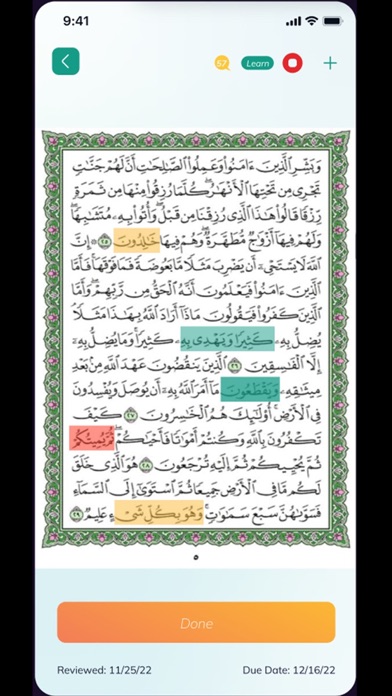 9:41
57
Learn
وَبَشِّرِ الَّذِينَ ءَامَنُوا وَعَمِلُوا الصَّالِحَاتِ أَنَّ لَهُمْ جَنَّاتٍ
تَجْرِي مِن تَحْتِهَا الْأَنْهَارُ كُلَّمَا رُزِقُوا مِنْهَا مِن ثَمَرَةٍ
رِّزْقًا قَالُوا هَٰذَا الَّذِي رُزِقْنَا مِن قَبْلُ وَأُتُوا بِهِ مُتَشَابِهًا
وَلَهُمْ فِيهَا أَزْوَاجٌ مُّطَهَّرَةٌ وَهُمْ فِيهَا خَالِدُونَ ۝٢٥ إِنَّ
اللَّهَ لَا يَسْتَحْيِي أَن يَضْرِبَ مَثَلًا مَّا بَعُوضَةً فَمَا فَوْقَهَا فَأَمَّا
الَّذِينَ ءَامَنُوا فَيَعْلَمُونَ أَنَّهُ الْحَقُّ مِن رَّبِّهِمْ وَأَمَّا
الَّذِينَ كَفَرُوا فَيَقُولُونَ مَاذَا أَرَادَ اللَّهُ بِهَٰذَا مَثَلًا
يُضِلُّ بِهِ كَثِيرًا وَيَهْدِي بِهِ كَثِيرًا وَمَا يُضِلُّ بِهِ
إِلَّا الْفَاسِقِينَ ۝٢٦ الَّذِينَ يَنقُضُونَ عَهْدَ اللَّهِ مِن بَعْدِ
مِيثَاقِهِ وَيَقْطَعُونَ مَا أَمَرَ اللَّهُ بِهِ أَن يُوصَلَ وَيُفْسِدُونَ
فِي الْأَرْضِ أُولَٰئِكَ هُمُ الْخَاسِرُونَ ۝٢٧ كَيْفَ
تَكْفُرُونَ بِاللَّهِ وَكُنتُمْ أَمْوَاتًا فَأَحْيَاكُمْ ثُمَّ يُمِيتُكُمْ
ثُمَّ يُحْيِيكُمْ ثُمَّ إِلَيْهِ تُرْجَعُونَ ۝٢٨ هُوَ الَّذِي خَلَقَ
لَكُم مَّا فِي الْأَرْضِ جَمِيعًا ثُمَّ اسْتَوَىٰ إِلَى السَّمَاءِ
فَسَوَّاهُنَّ سَبْعَ سَمَاوَاتٍ وَهُوَ بِكُلِّ شَيْءٍ عَلِيمٌ ۝٢٩
٥
Done
Reviewed: 11/25/22
Due Date: 12/16/22